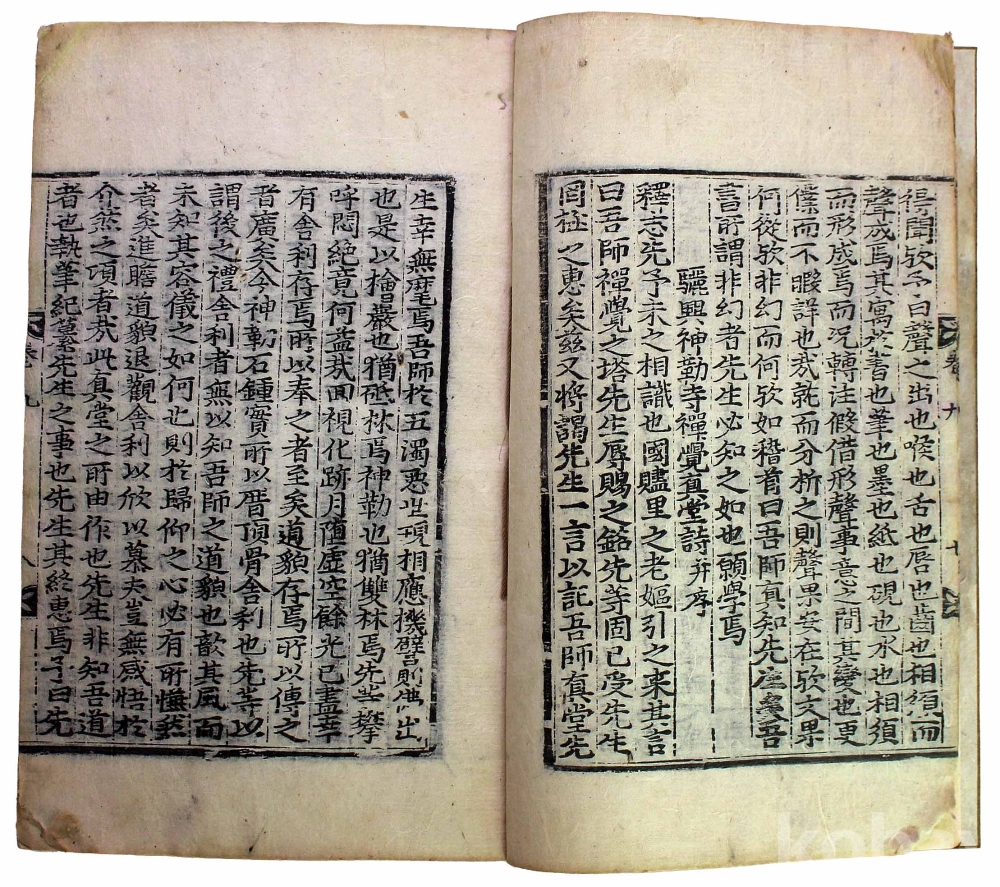 得聞歟予曰聲之出也喉也舌也唇也齒也相須而
聲成焉其寓於書也筆也墨也紙也硯也水也相須
而形成焉而況轉注假借形聲事意之間其變也更
僕而不暇詳也哉就而分析之則聲果安在歟文果
何從歟非幻而何歟如稽首曰吾師真知先矣吾
書所謂非幻者先生必知之如也願學焉
驪興神勒寺禪覺真堂詩并序
釋志先予未之相識也國贐里之老嫗引之来其言
曰吾師禪覺之塔先生辱賜之銘先等固已受先生
罔極之惠矣兹又將謁先生一言以記吾師真堂先
卷九 七
生幸無麾焉吾師於五濁惡世現相應機譬則出
也是以檜巖也猶砥林焉神勒也猶雙林焉先等攀
呼悶絕竟何益哉回視化跡月墮虛空餘光已盡幸
有舍利存焉所以奉之者至矣道貌存焉所以傳之
者廣矣今神勒石鍾實所以厝頂骨舍利也先等以
謂後之禮舍利者無以知吾師之道貌也歆其風而
未知其容儀之如何也則於歸仰之心必有所慊然
者矣進瞻道貌退觀舍利以欣以慕夫豈無感悟於
介然之頃者哉此真堂之所由作也先生非知吾道
者也執筆紀先生之事也先生其終惠焉予曰先
卷九 八